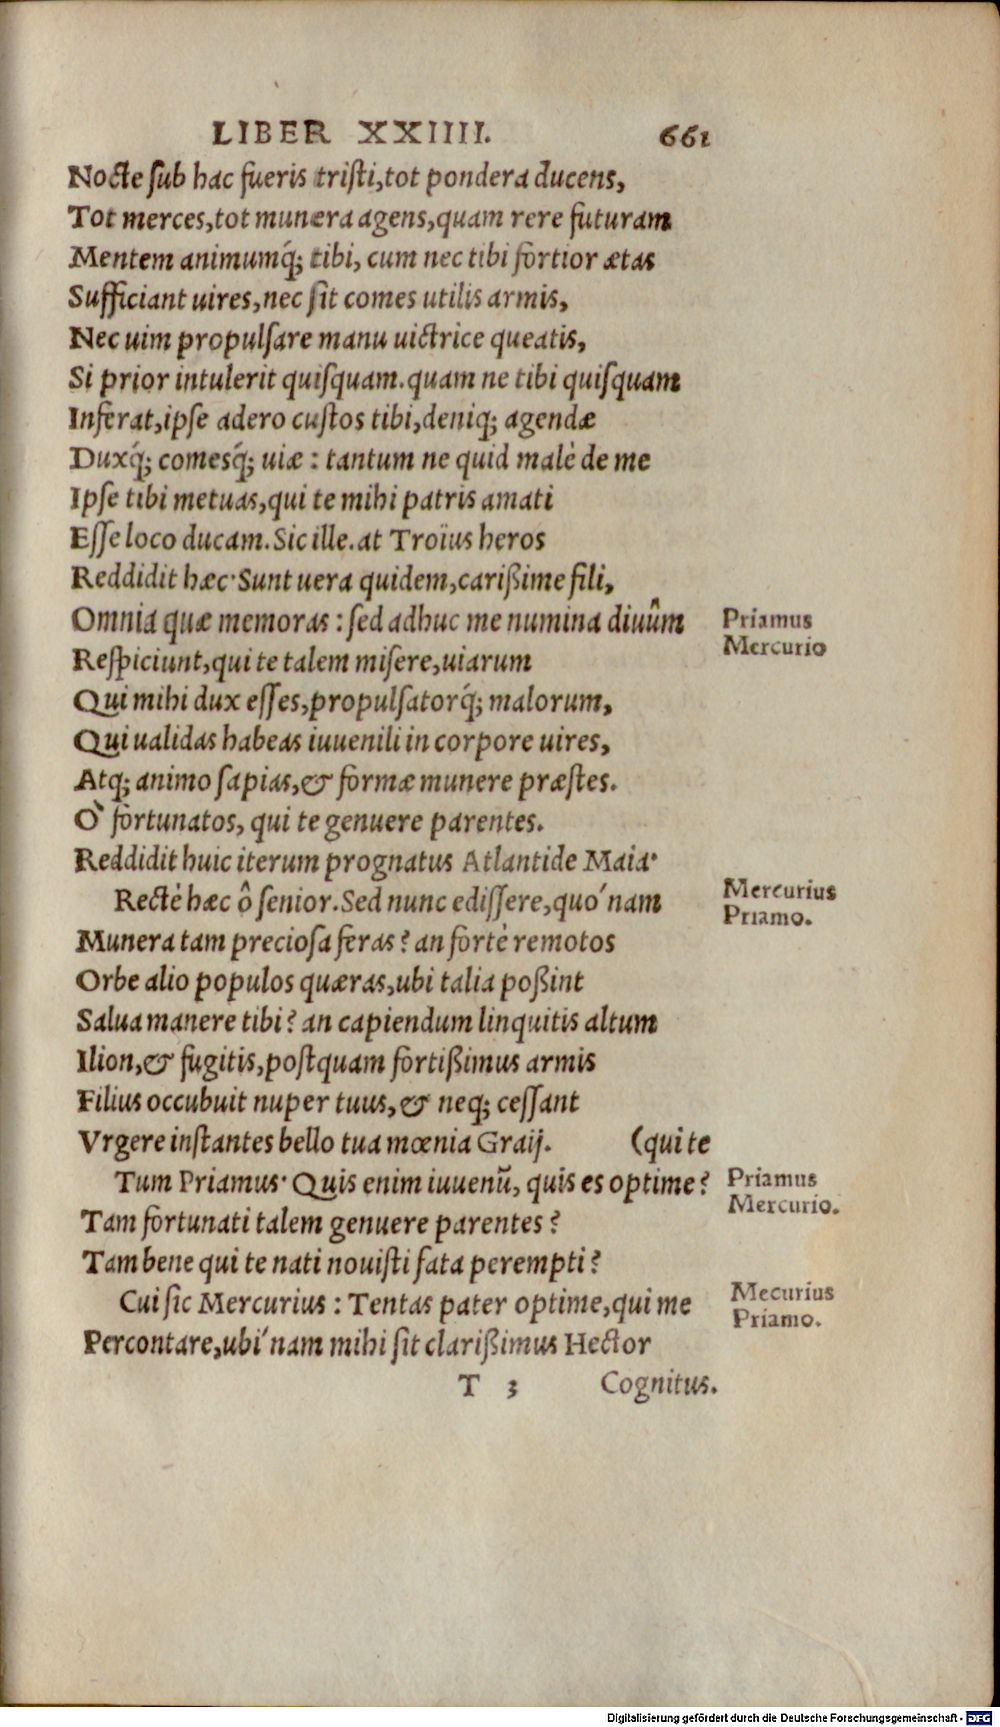 LIBER XXIIII. 661
Nocte sub hac fueris tristi, tot pondera ducens,
Tot merces, tot munera agens, quam rere futuram
Mentem animumq́; tibi, cum nec tibi fortior ætas
Sufficiant uires, nec sit comes utilis armis,
Nec uim propulsare manu uictrice queatis,
Si prior intulerit quisquam. quam ne tibi quisquam
Inferat, ipse adero custos tibi, deniq; agendæ
Duxq́; comesq́; uiæ : tantum ne quid malè de me
Ipse tibi metuas, qui te mihi patris amati
Esse loco ducam. Sic ille. at Troïus heros
Reddidit hæc· Sunt uera quidem, carißime fili,
Omnia quæ memoras : sed adhuc me numina diuûm
Priamus
Mercurio
Respiciunt, qui te talem misere, uiarum
Qui mihi dux esses, propulsatorq́; malorum,
Qui ualidas habeas iuuenili in corpore uires,
Atq; animo sapias, & formæ munere præstes.
Ò fortunatos, qui te genuere parentes.
Reddidit huic iterum prognatus Atlantide Maia·
Rectè hæc ô senior. Sed nunc edissere, quó nam
Mercurius
Priamo.
Munera tam preciosa feras? an fortè remotos
Orbe alio populos quæras, ubi talia poßint
Salua manere tibi? an capiendum linquitis altum
Ilion, & fugitis, postquam fortißimus armis
Filius occubuit nuper tuus, & neq; cessant
Vrgere instantes bello tua mœnia Graij. (qui te
Tum Priamus· Quis enim iuuenũ, quis es optime?
Priamus
Mercurio.
Tam fortunati talem genuere parentes?
Tam bene qui te nati nouisti fata perempti?
Cui sic Mercurius : Tentas pater optime, qui me
Mecurius
Priamo.
Percontare, ubí nam mihi sit clarißimus Hector
T 3 Cognitus.
Digitalisierung gefördert durch die Deutsche Forschungsgemeinschaft - DFG